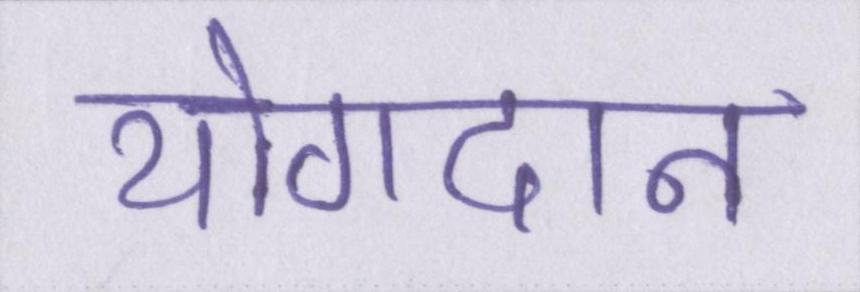 योगदान